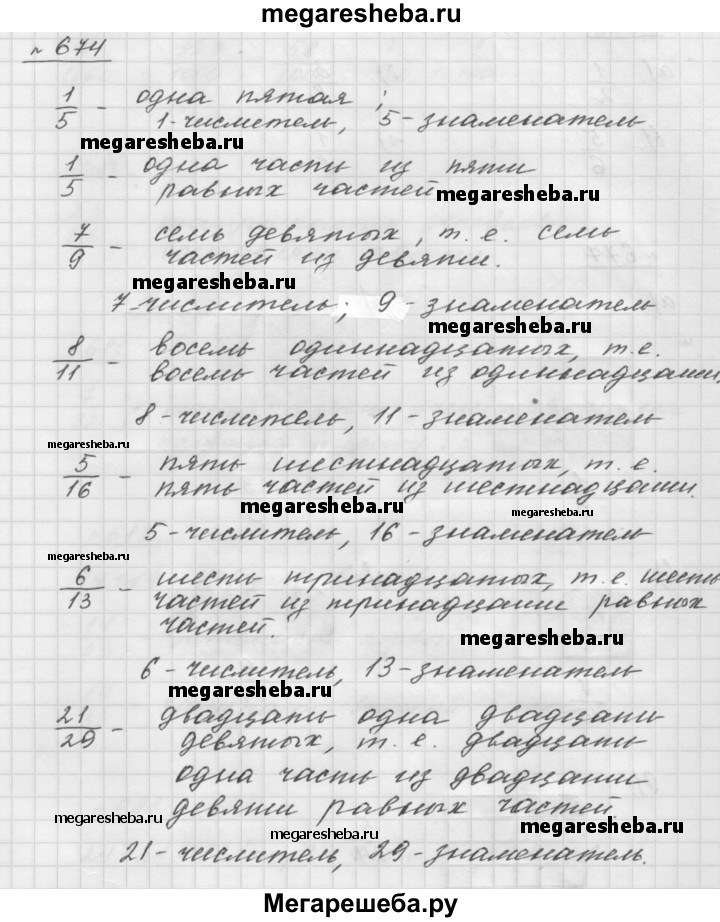 megaresheba.ru
№ 674
1/5 - одна пятая;
1-числитель, 5-знаменатель
megaresheba.ru
1/5 - одна часть из пяти
равных частей megaresheba.ru
7/9 - семь девятых, т. е. семь
частей из девяти.
megaresheba.ru
7-числитель; 9-знаменатель
megaresheba.ru
8/11 - восемь одиннадцатых, т.е.
восемь частей из одиннадцати.
8-числитель, 11-знаменатель
megaresheba.ru megaresheba.ru
5/16 - пять шестнадцатых, т. е.
пять частей из шестнадцати.
megaresheba.ru megaresheba.ru
5-числитель, 16-знаменатель
megaresheba.ru
6/13 - шесть тринадцатых, т. е. шесть
частей из тринадцати равных
частей.
megaresheba.ru
6-числитель, 13-знаменатель
megaresheba.ru
21/29 - двадцать одна двадцать
девятых, т. е. двадцать
одна часть из двадцати
девяти равных частей
megaresheba.ru megaresheba.ru megaresheba.ru
21-числитель, 29-знаменатель.
Мегарешеба.ру